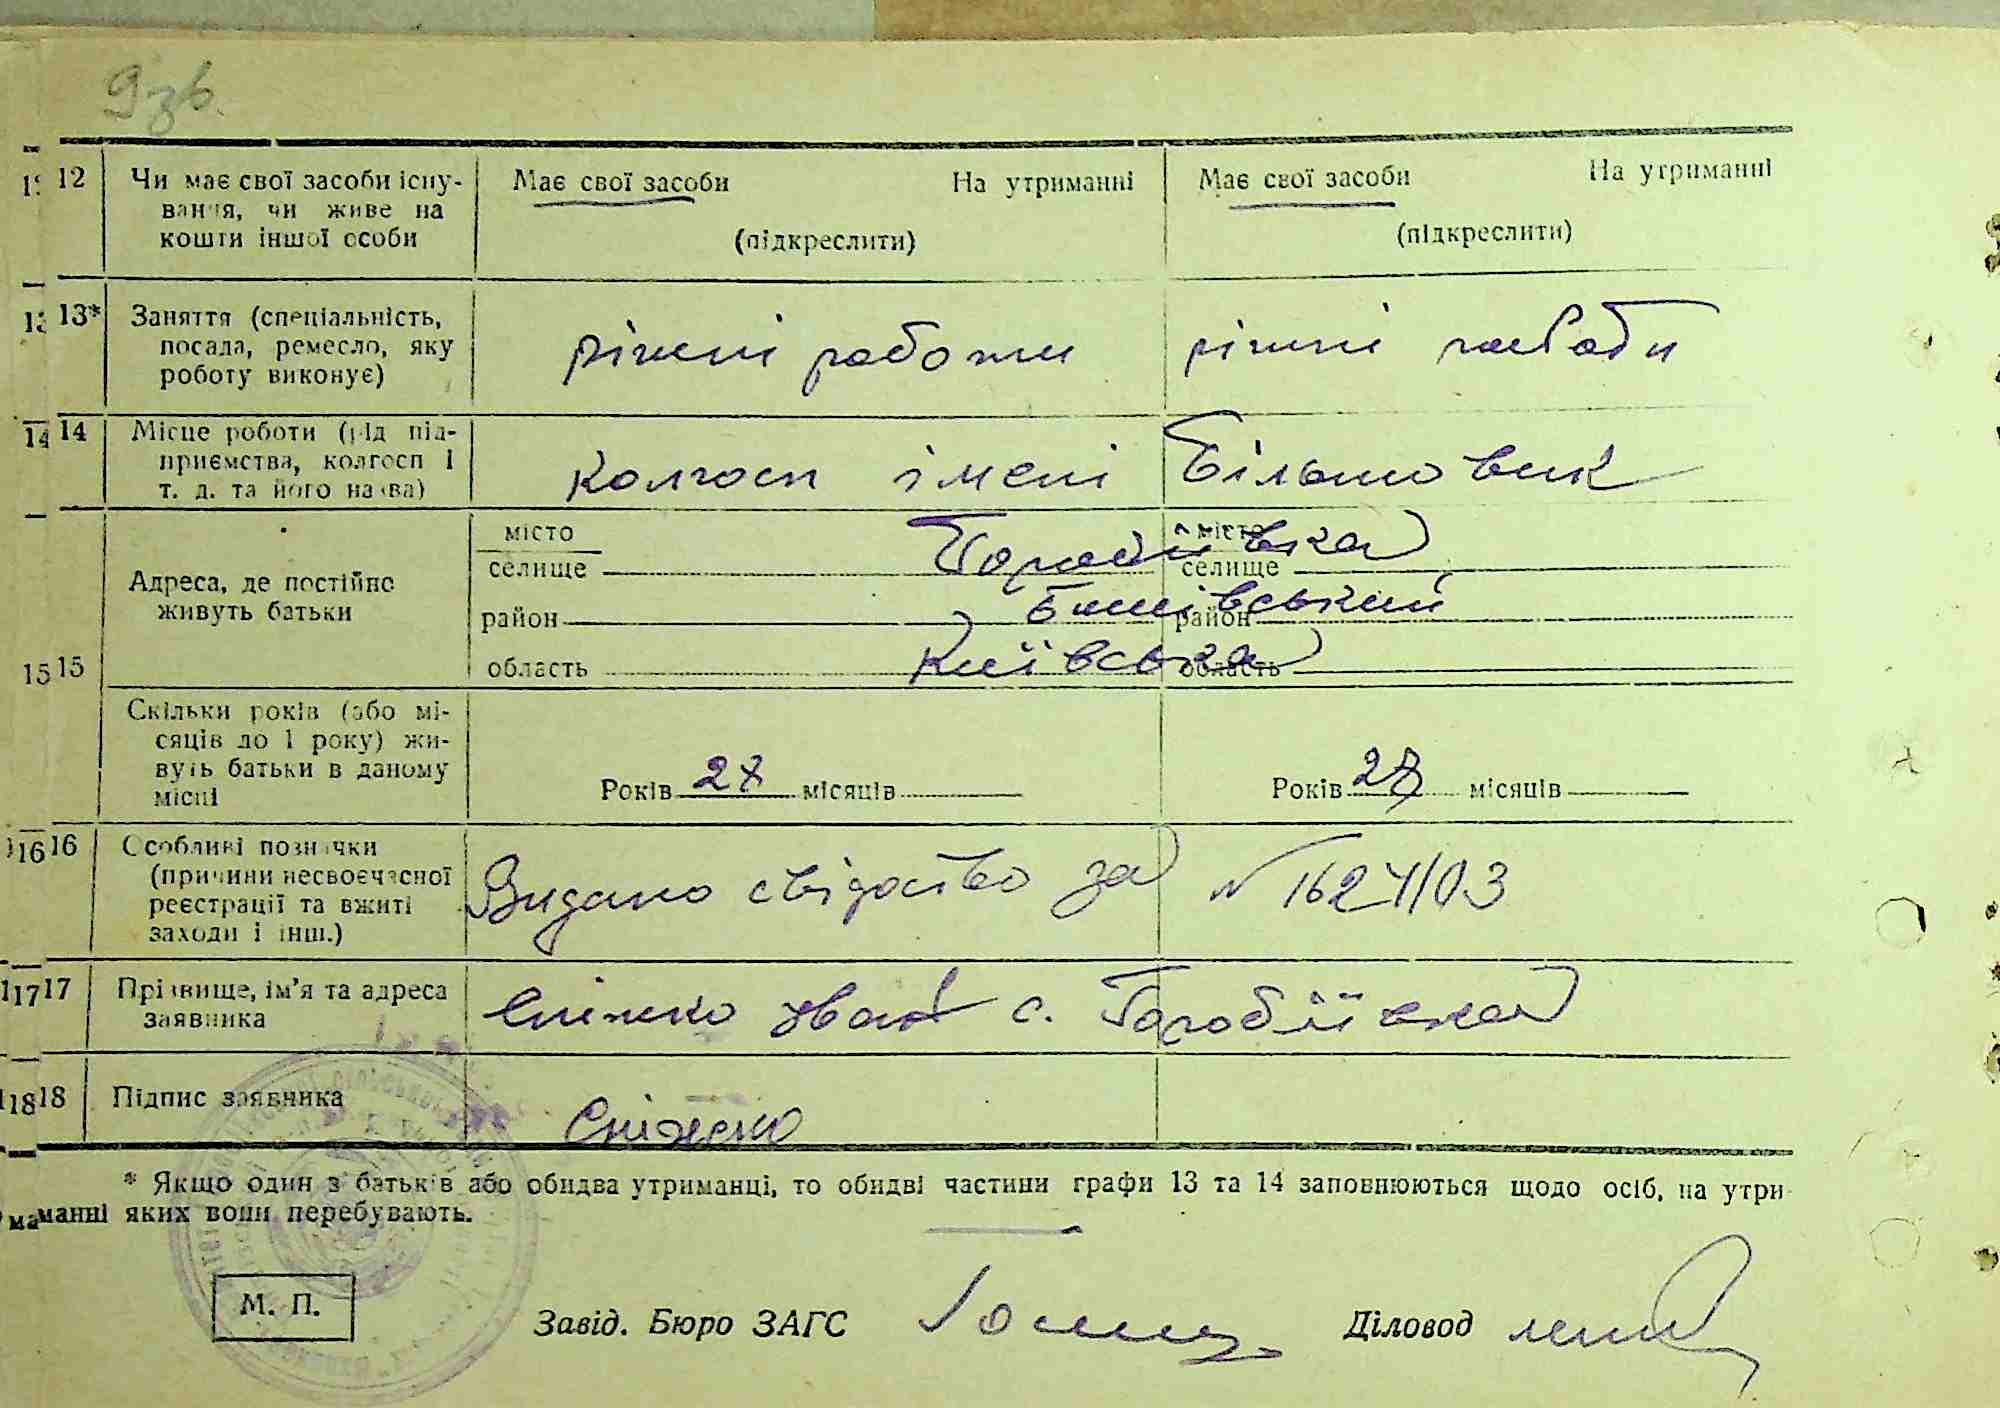 9зв.
12 Чи має свої засоби існу- Має свої засоби На утриманні Має свої засоби На утриманні
вання, чи живе на
кошти іншої особи (підкреслити) (підкреслити)
13* Заняття (спеціальність,
посада, ремесло, яку різні роботи різні работи
роботу виконує)
14 Місце роботи (рід під-
приємства, колгосп і колгосп імені Більшовик
т. д. та його назва)
місто місто
Адреса, де постійно селище селище
живуть батьки район район
15 область Київська область
Скільки років (або мі-
сяців до 1 року) жи-
вуть батьки в даному Років 27 місяців Років 27 місяців
місці
16 Особливі позначки
(причини несвоєчасної Видано свідоство за № 1624/03
реєстрації та вжиті
заходи і інш.)
17 Прізвище, ім'я та адреса Сніжко Іван с. Горобіївка
заявника
18 Підпис заявника Сніжко
* Якщо один з батьків або обидва утриманці, то обидві частини графи 13 та 14 заповнюються щодо осіб, на утри-
манні яких вони перебувають.
М. П. Завід. Бюро ЗАГС Діловод